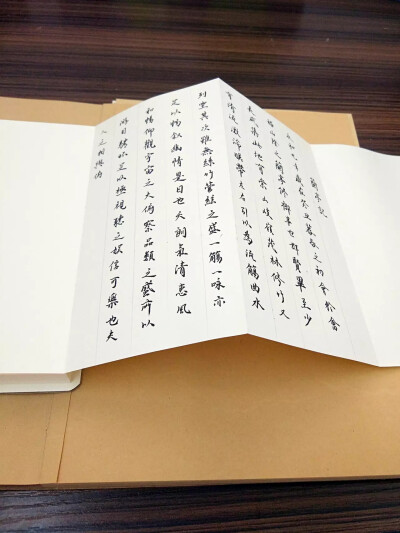 蘭亭記
永和九年歲在癸丑暮春之初會於會
稽山陰之蘭亭修禊事也群賢畢至少
長咸集此地有崇山峻嶺茂林修竹又
有清流激湍暎帶左右引以為流觴曲水
列坐其次雖無絲竹管絃之盛一觴一詠亦
足以暢敘幽情是日也天朗氣清惠風
和暢仰觀宇宙之大俯察品類之盛所以
遊目騁懷足以極視聽之娛信可樂也夫
人之相與俯